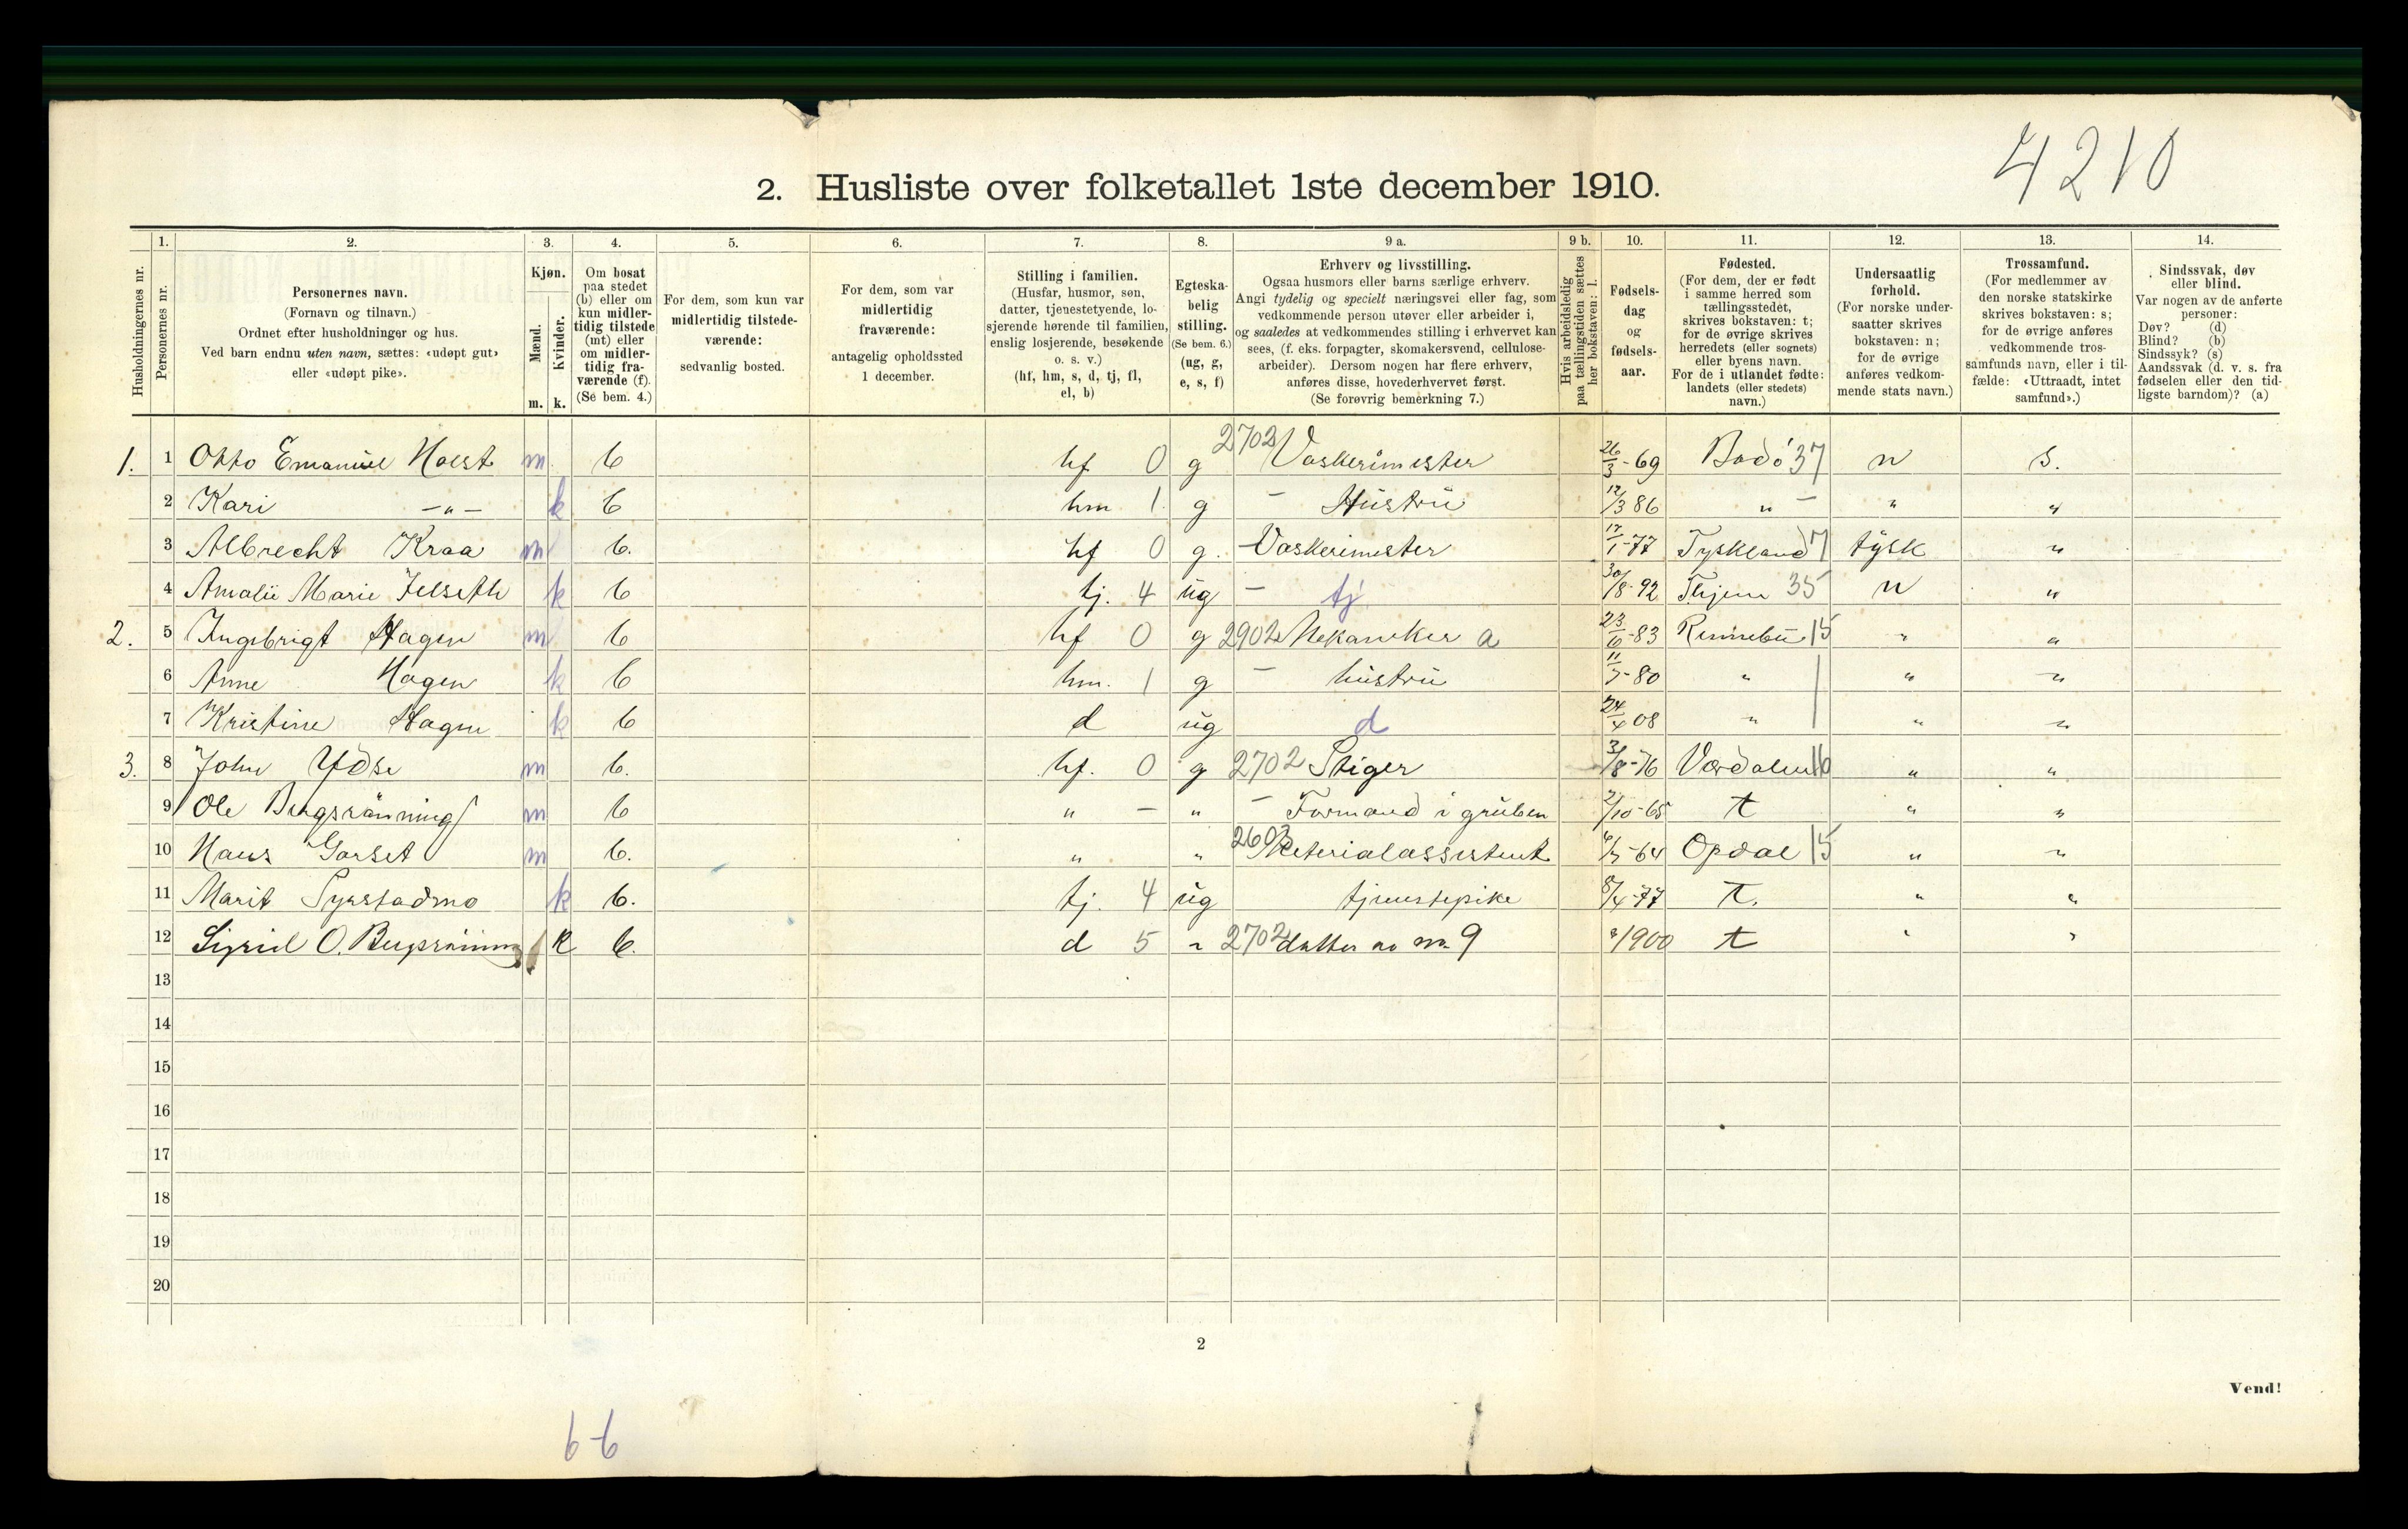 4210
2. Husliste over folketallet 1ste december 1910.
1. 2. 3. 4. 5. 6. 7. 8. 9 a. 9 b. 10. 11. 12. 13. 14.
Husholdningernes nr.
Personernes nr.
Personernes navn.
(Fornavn og tilnavn.)
Ordnet efter husholdninger og hus.
Ved barn endnu uten navn, sættes: «udøpt gut»
eller «udøpt pike».
Kjøn.
Mænd.
Kvinder.
m. k.
Om bosat
paa stedet
(b) eller om
kun midler-
tidig tilstede
(mt) eller
om midler-
tidig fra-
værende (f).
(Se bem. 4.)
For dem, som kun var
midlertidig tilstede-
værende:
sedvanlig bosted.
For dem, som var
midlertidig
fraværende:
antagelig opholdssted
1 december.
Stilling i familien.
(Husfar, husmor, søn,
datter, tjenestetyende, lo-
sjerende hørende til familien,
enslig losjerende, besøkende
o. s. v.)
(hf, hm, s, d, tj, fl,
el, b)
Egteska-
belig
stilling.
(Se bem. 6.)
(ug, g,
e, s, f)
Erhverv og livsstilling.
Ogsaa husmors eller barns særlige erhverv.
Angi tydelig og specielt næringsvei eller fag, som
vedkommende person utøver eller arbeider i,
og saaledes at vedkommendes stilling i erhvervet kan
sees, (f. eks. forpagter, skomakersvend, cellulose-
arbeider). Dersom nogen har flere erhverv,
anføres disse, hovederhvervet først.
(Se forøvrig bemerkning 7.)
Hvis arbeidsledig
paa tællingstiden sættes
her bokstaven: l.
Fødsels-
dag
og
fødsels-
aar.
Fødested.
(For dem, der er født
i samme herred som
tællingsstedet,
skrives bokstaven: t;
for de øvrige skrives
herredets (eller sognets)
eller byens navn.
For de i utlandet fødte:
landets (eller stedets)
navn.)
Undersaatlig
forhold.
(For norske under-
saatter skrives
bokstaven: n;
for de øvrige
anføres vedkom-
mende stats navn.)
Trossamfund.
(For medlemmer av
den norske statskirke
skrives bokstaven: s;
for de øvrige anføres
vedkommende tros-
samfunds navn, eller i til-
fælde: «Uttraadt, intet
samfund».)
Sindssvak, døv
eller blind.
Var nogen av de anførte
personer:
Døv? (d)
Blind? (b)
Sindssyk? (s)
Aandssvak (d. v. s. fra
fødselen eller den tid-
ligste barndom)? (a)
1. 1 Otto Emanuel Holst m b hf 0 g 2702 Vaskerimester 26/3-69 Bodö 37 n s.
2 Kari -"- k b hm 1 g - Hustru 12/3 86 " - " "
3 Albrecht Kraa m b. hf 0 g. - Vaskerimester 17/1-77 Tyskland 7 tysk "
4 Amalie Marie Jelseth k b tj. 4 ug - tj 30/8-92 35 n "
2. 5 Ingebrigt Hagen m b hf 0 g 2902 Mekaniker a 23/10-83 Rennebu 15 " "
6 Anne Hagen k b hm. 1 g - hustru 11/7-80 " " "
7 Kristine Hagen k b d ug d 24/4 08 " " "
3. 8 John Ydse m b. hf. 0 g 2702 Stiger 3/8-76 Værdalen 16 " "
9 Ole Bergsrönning m b " - " - Formand i gruben 2/10-65 t " "
10 Hans Gorset m b. " " 2603 Meterialassistent 4/7-64 Opdal 15 " "
11 Marit Syrstadmo k b. tj. 4 ug tjenestepike 8/4-77 t. " "
12 Sigrid O. Bergsrönning k b. d 5 " 2702 datter av nr. 9 1900 t " "
13
14
15
16
17
18
19
20
2
Vend!
6-6